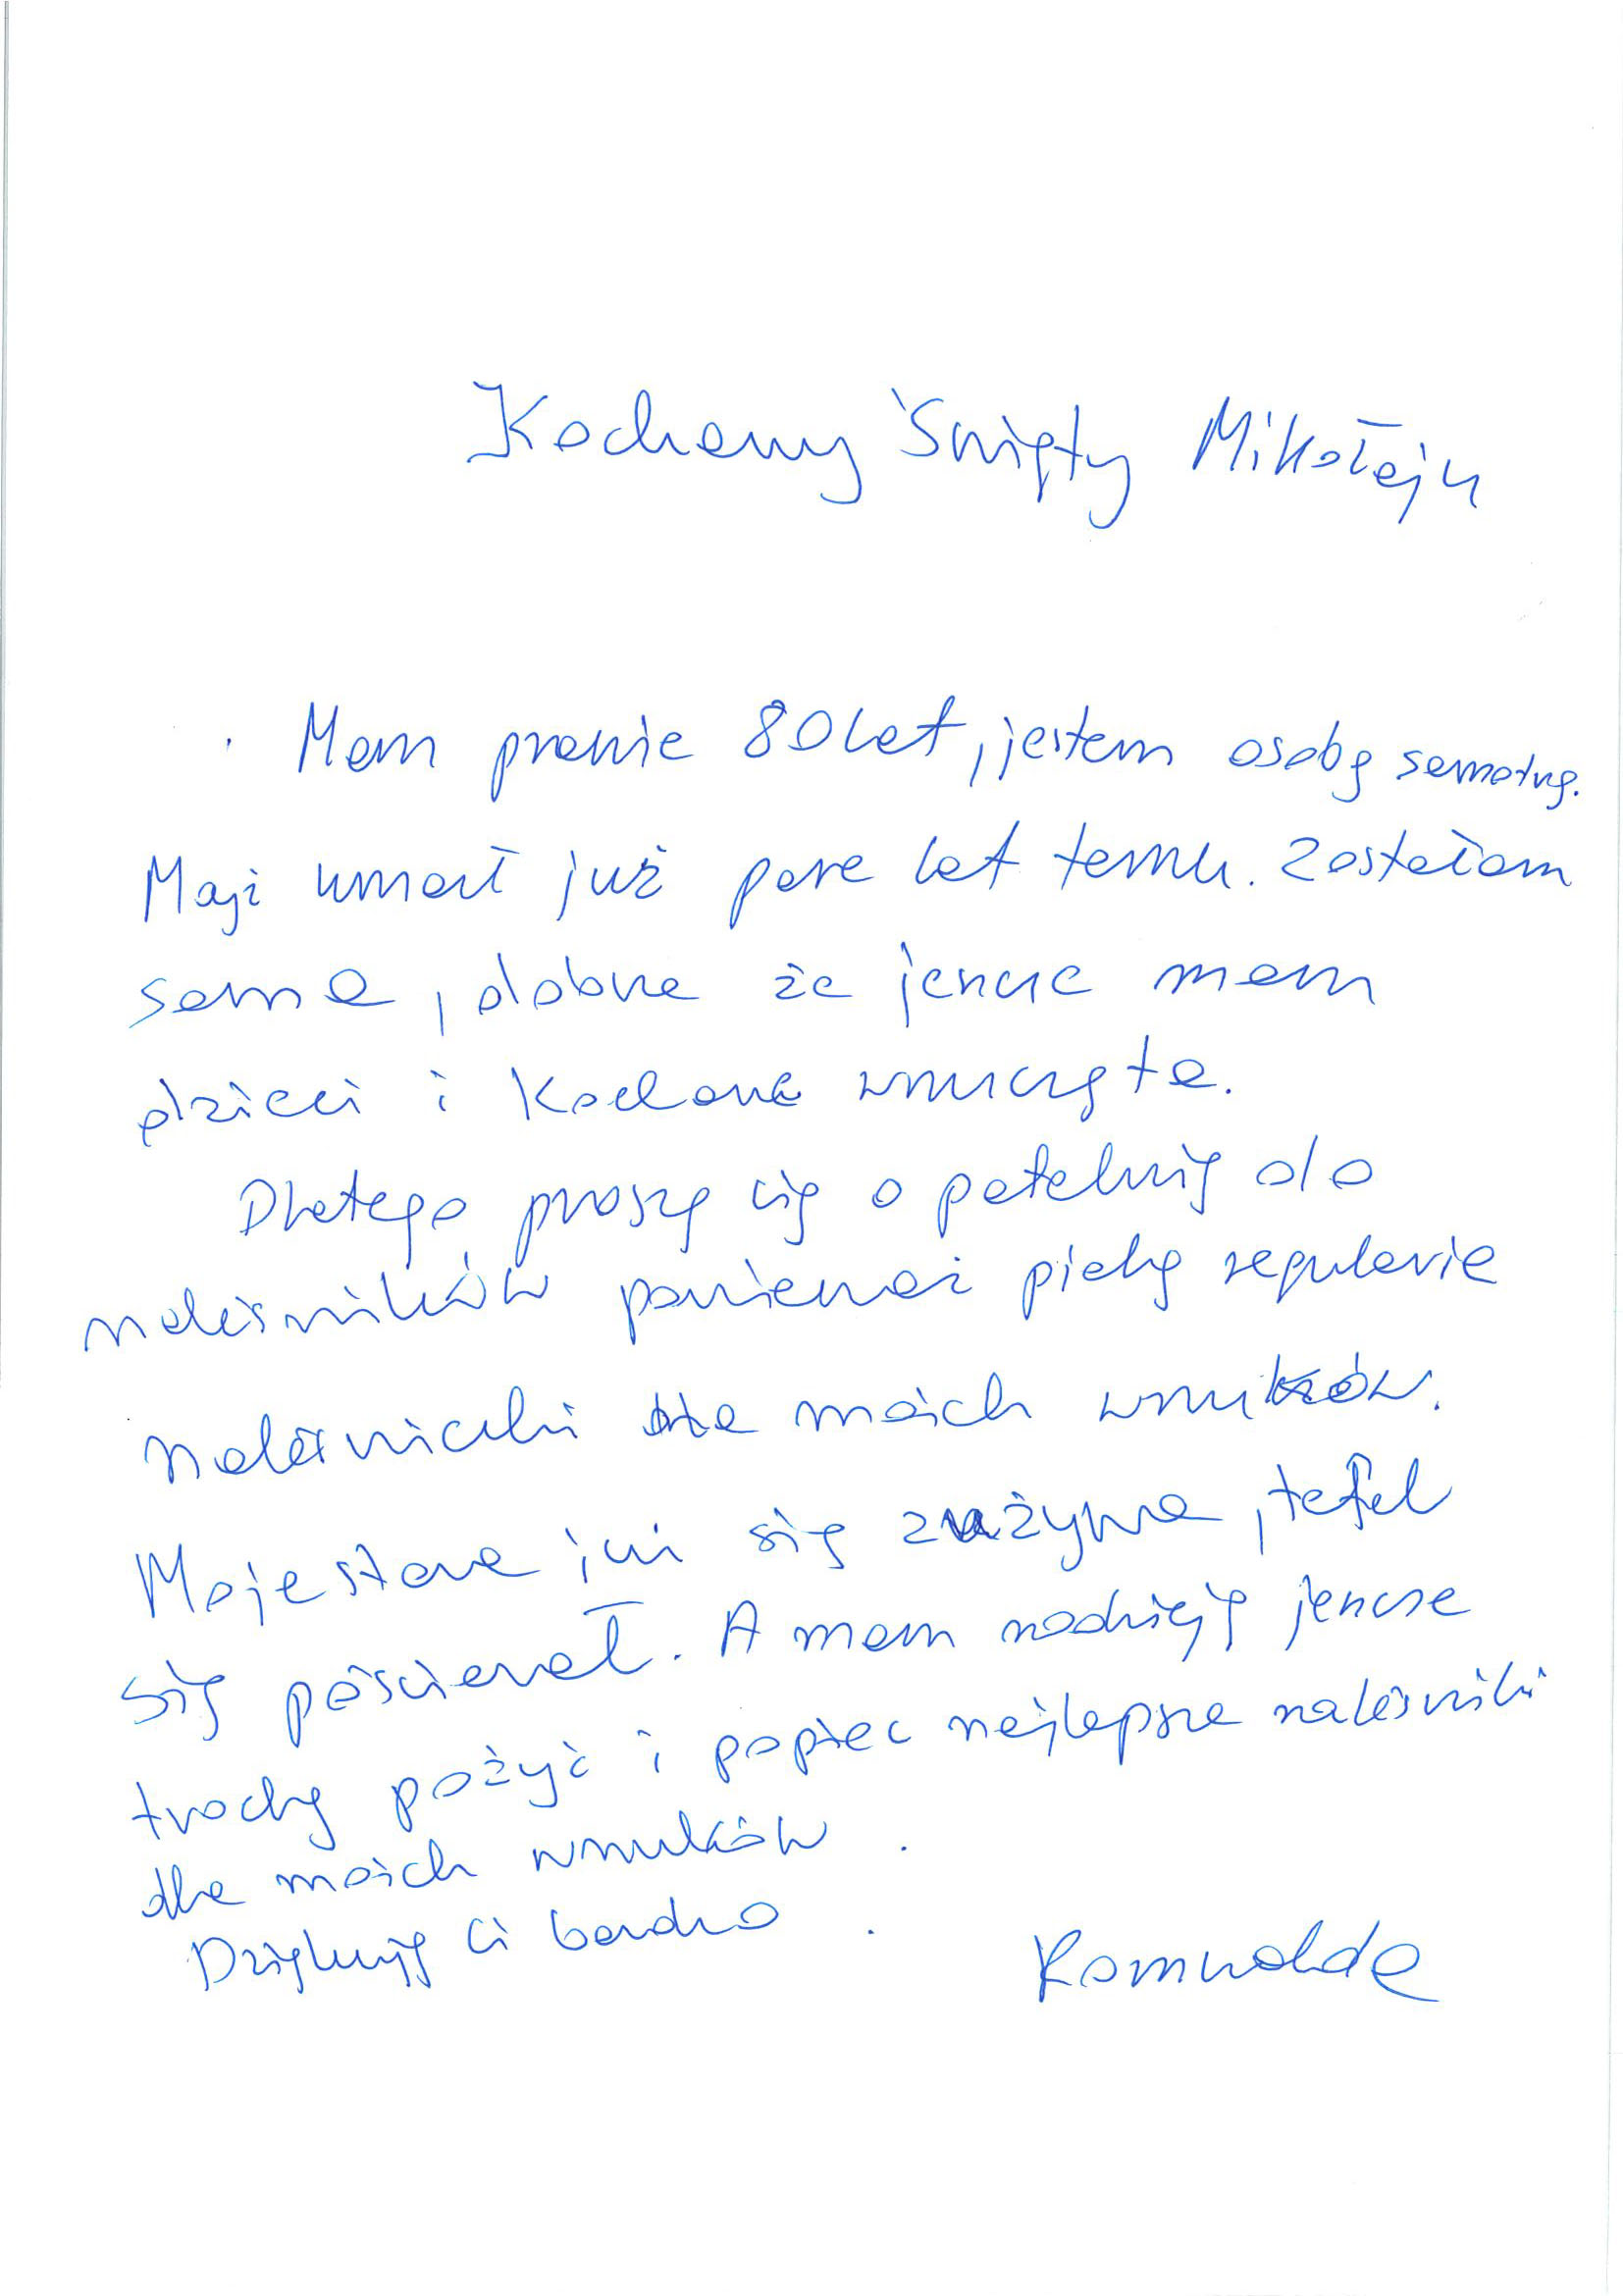 Kochany Święty Mikołaju
Mam prawie 80 lat, jestem osobą samotną.
Mąż umarł już parę lat temu. Zostałam
sama, dobrze że jeszcze mam
dzieci i kochane wnuczęta.
Dlatego proszę cię o patelnię do
naleśników ponieważ piekę regularnie
naleśniczki dla moich wnuków.
Moje stare już się zużywa, tefal
się pościerał. A mam nadzieję jeszcze
trochę pożyć i popiec najlepsze naleśniki
dla moich wnuków.
Dziękuję Ci bardzo.
Romualda